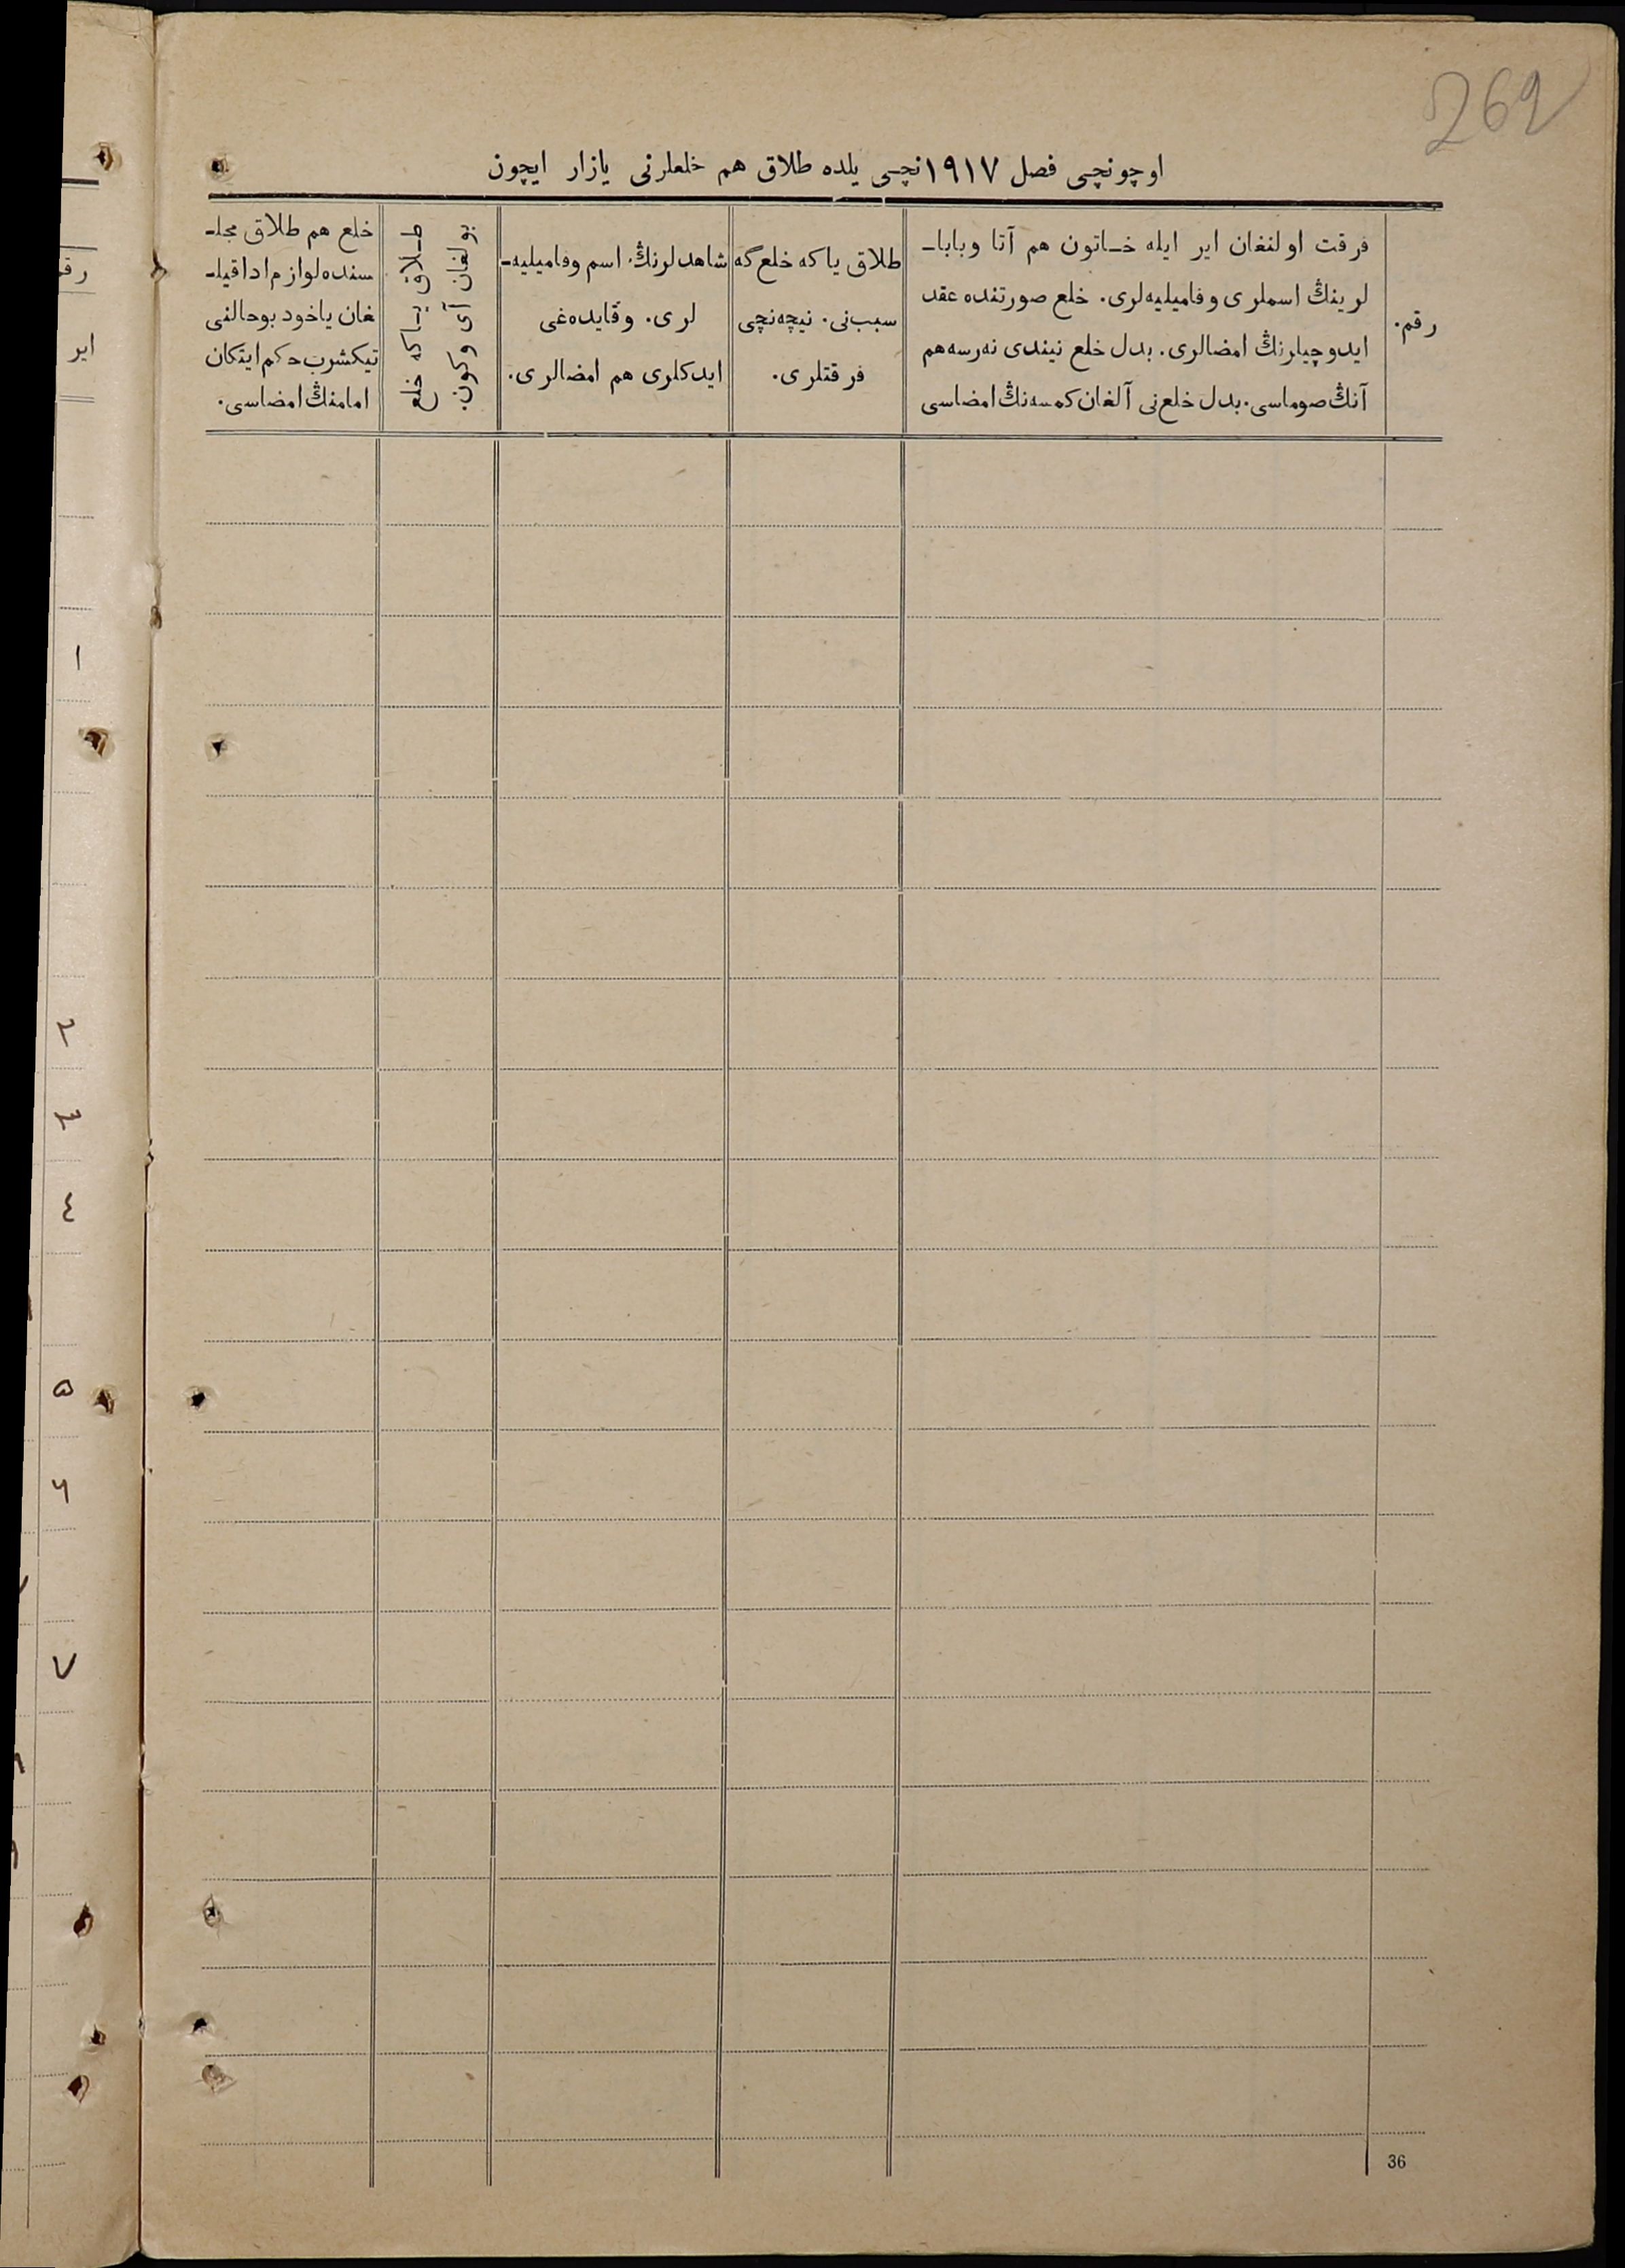 269
اوچونچی فصل ١٩١٧نچی یلده طلاق هم خلعلرنی یازار ایچون
رقم.
فرقت اولنغان ایر ایله خـاتون هم آتا وبابا-
لرینڭ اسملری وفامیلیه‌لری. خلع صورتنده عقد
ایدوچیلرنڭ امضالری. بدل خلع نیندی نه‌رسه هم
آنڭ صوماسی. بدل خلع‌نی آلغان کمسه‌نڭ امضاسی
طلاق یاکه خلع‌گه
سبب‌نی. نیچه‌نچی
فرقتلری.
شاهدلرنڭ اسم وفامیلیه-
لری. وقایده‌غی
ایدکلری هم امضالری.
طـلاق یـاکه خلع
بولغان آی وکون.
خلع هم طلاق مجلـ
سنده لوازم ادا قیلـ
غان یاخود بوحالنی
تیکشرب حکم ایتکان
امامنڭ امضاسی.
36
ایر
١
٢
٣
٤
٥
٦
٧